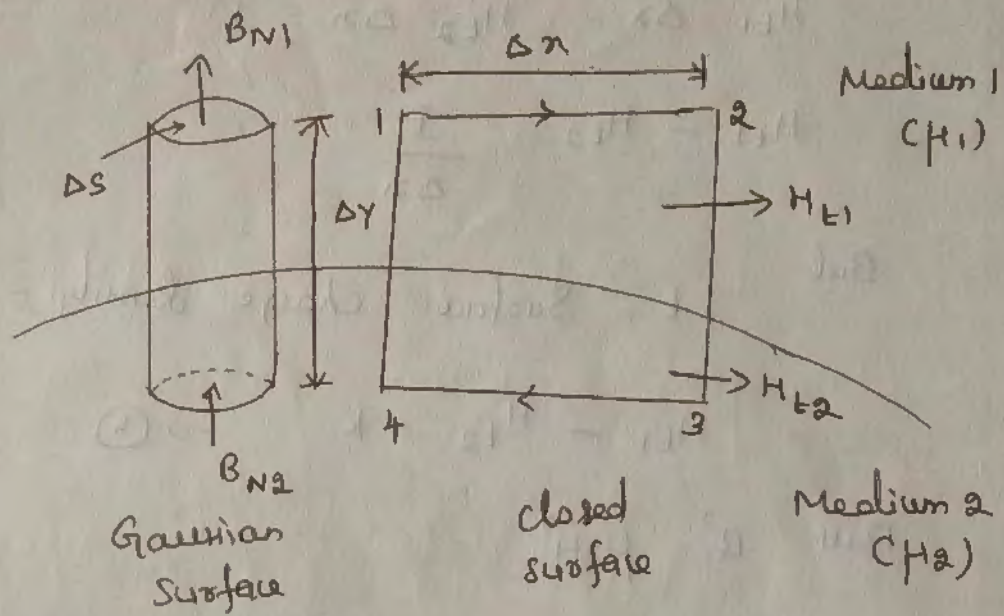 B_N1
Δx
Medium 1
(μ1)
1
2
ΔS
ΔY
H_t1
H_t2
4
3
B_N2
Gaussian
Surface
closed
surface
Medium 2
(μ2)